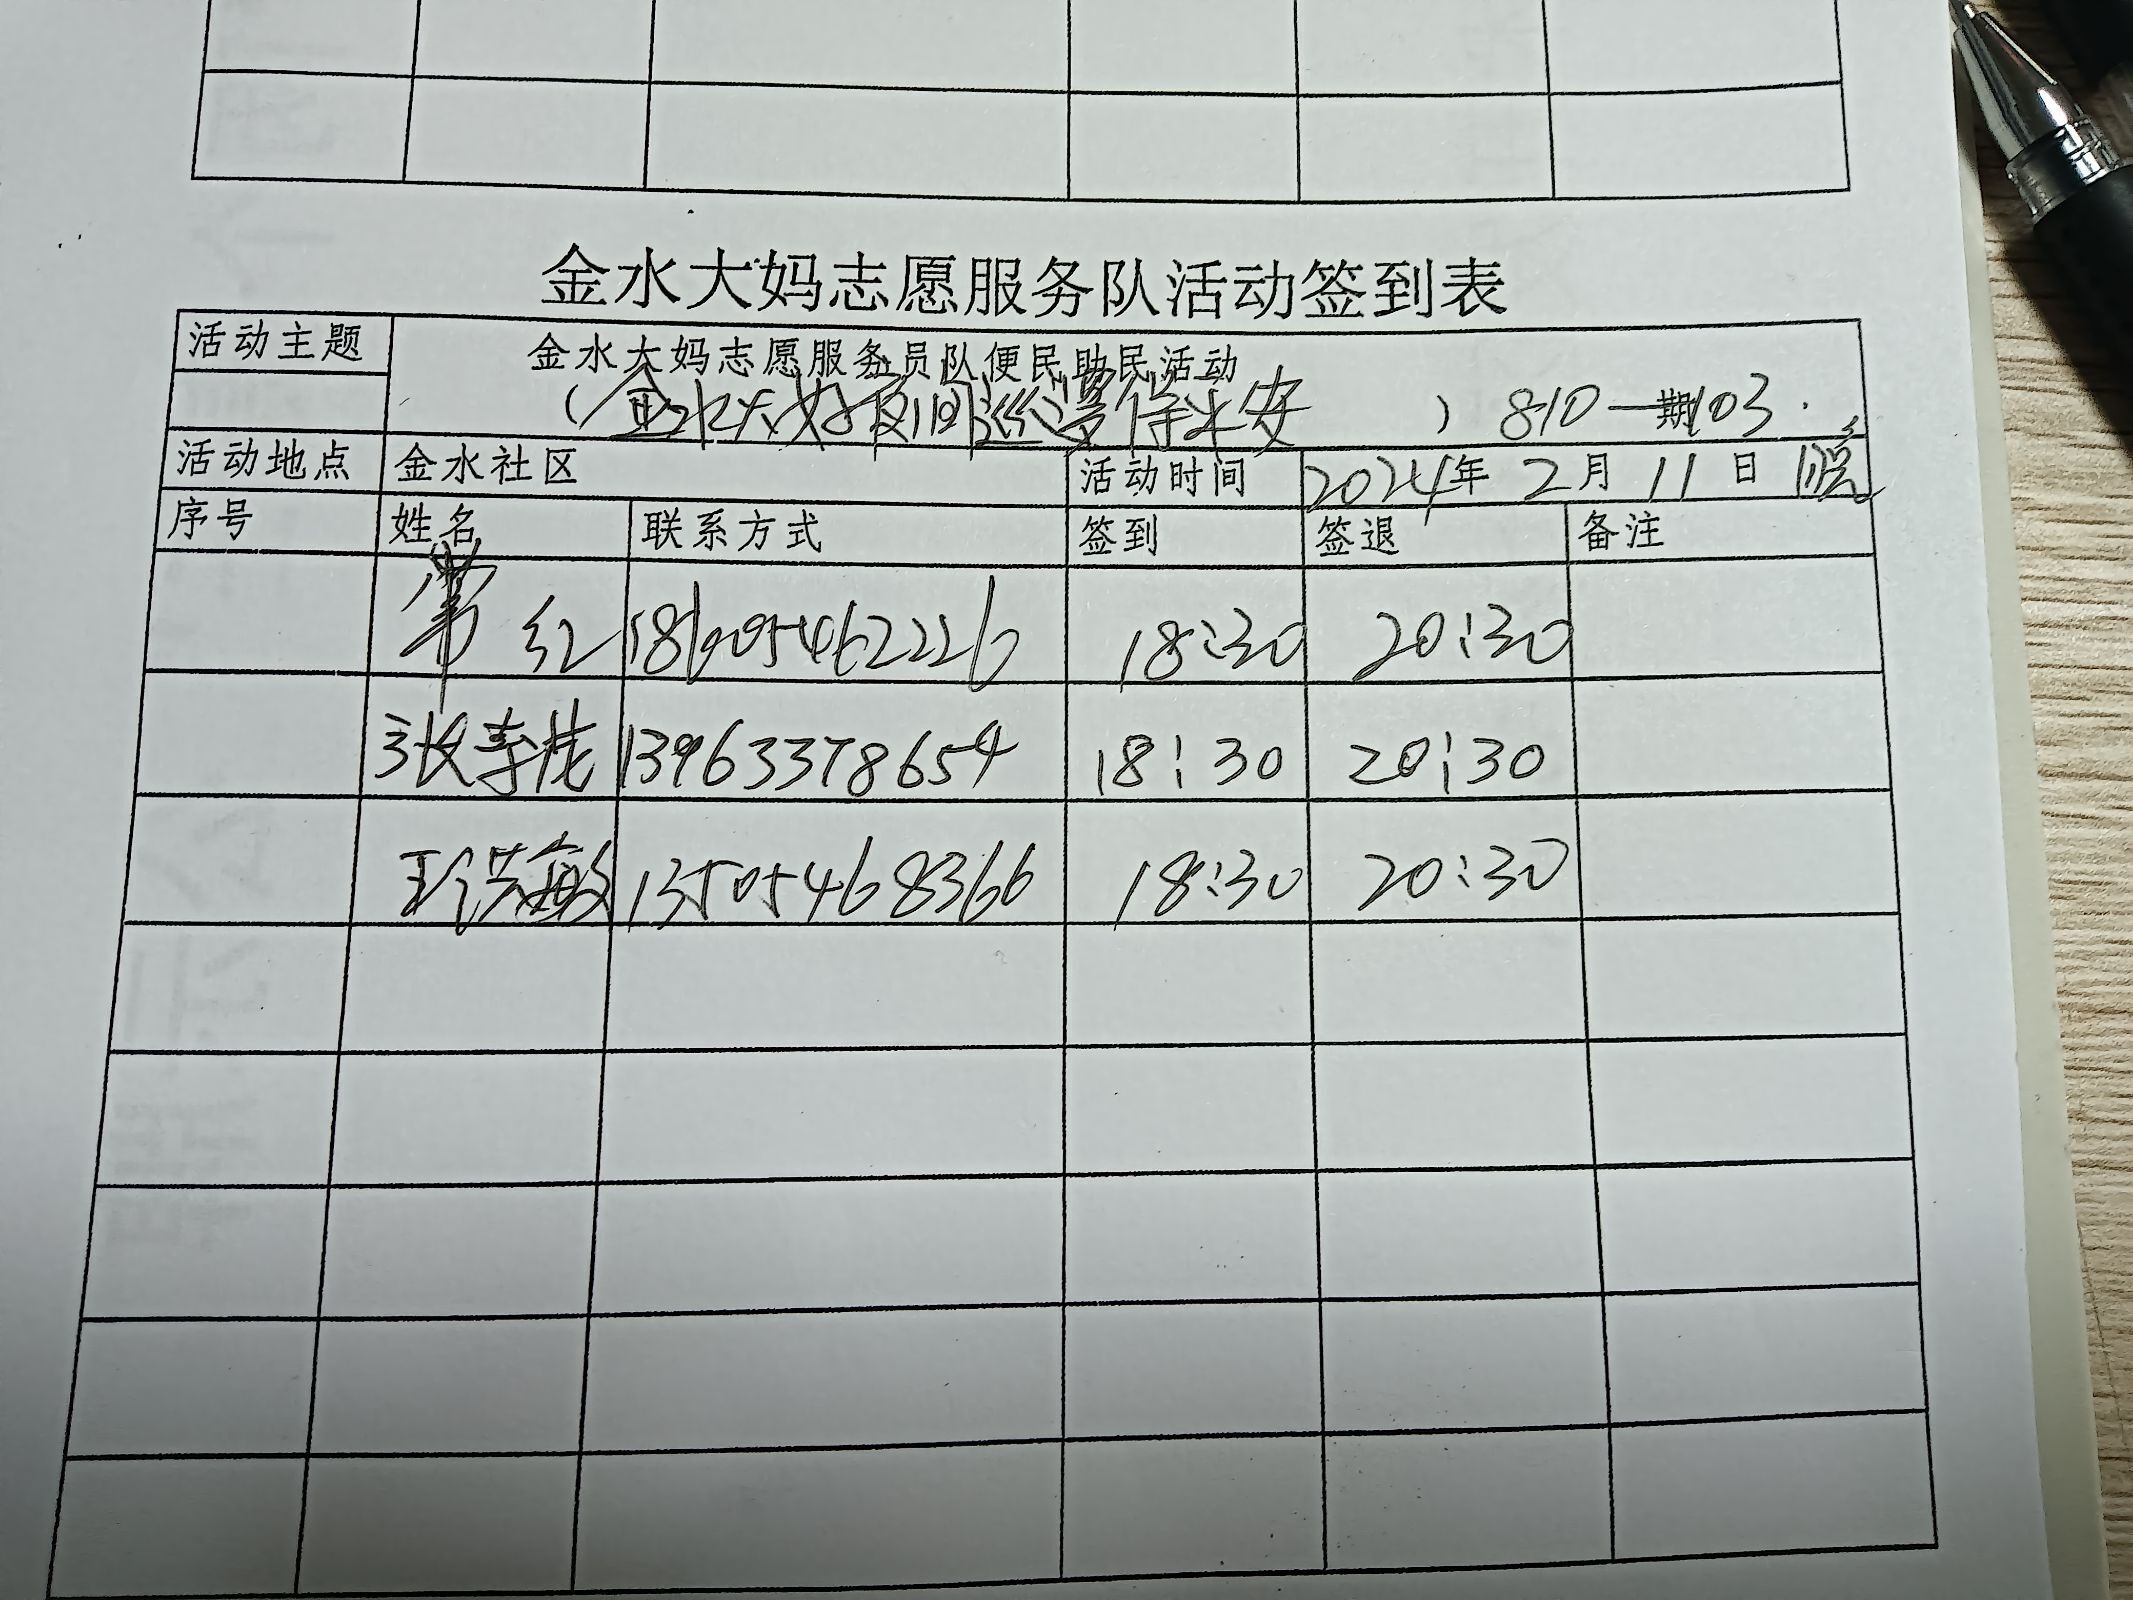 金水大妈志愿服务队活动签到表
活动主题 金水大妈志愿服务员队便民助民活动
（金水大妈夜间巡逻保平安 ）810一期103.
活动地点 金水社区 活动时间 2024年2月11日 晚
序号 姓名 联系方式 签到 签退 备注
红 18605462226 18:30 20:30
张李栈 13963378654 18:30 20:30
王洪敏 13505468366 18:30 20:30